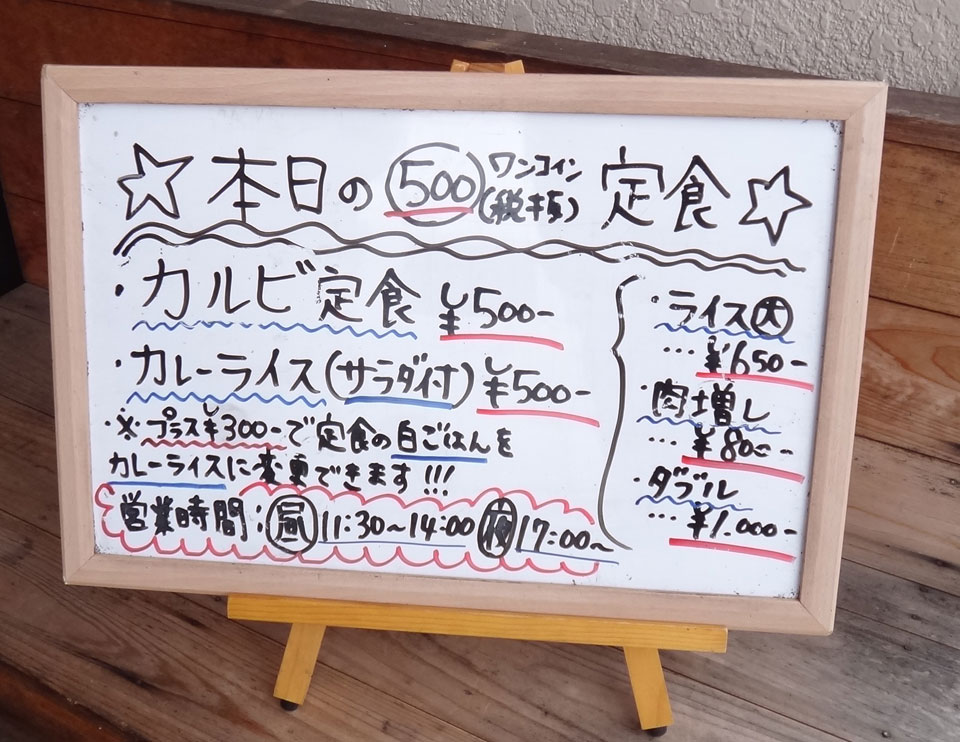 ☆本日の500ワンコイン(税抜)定食☆
・カルビ定食 ¥500-
・カレーライス(サラダ付) ¥500-
・※プラス¥300-で定食の白ごはんを
カレーライスに変更できます!!!
営業時間:昼11:30～14:00 夜17:00～
・ライス大
…¥650-
・肉増し
…¥800-
・ダブル
…¥1.000-